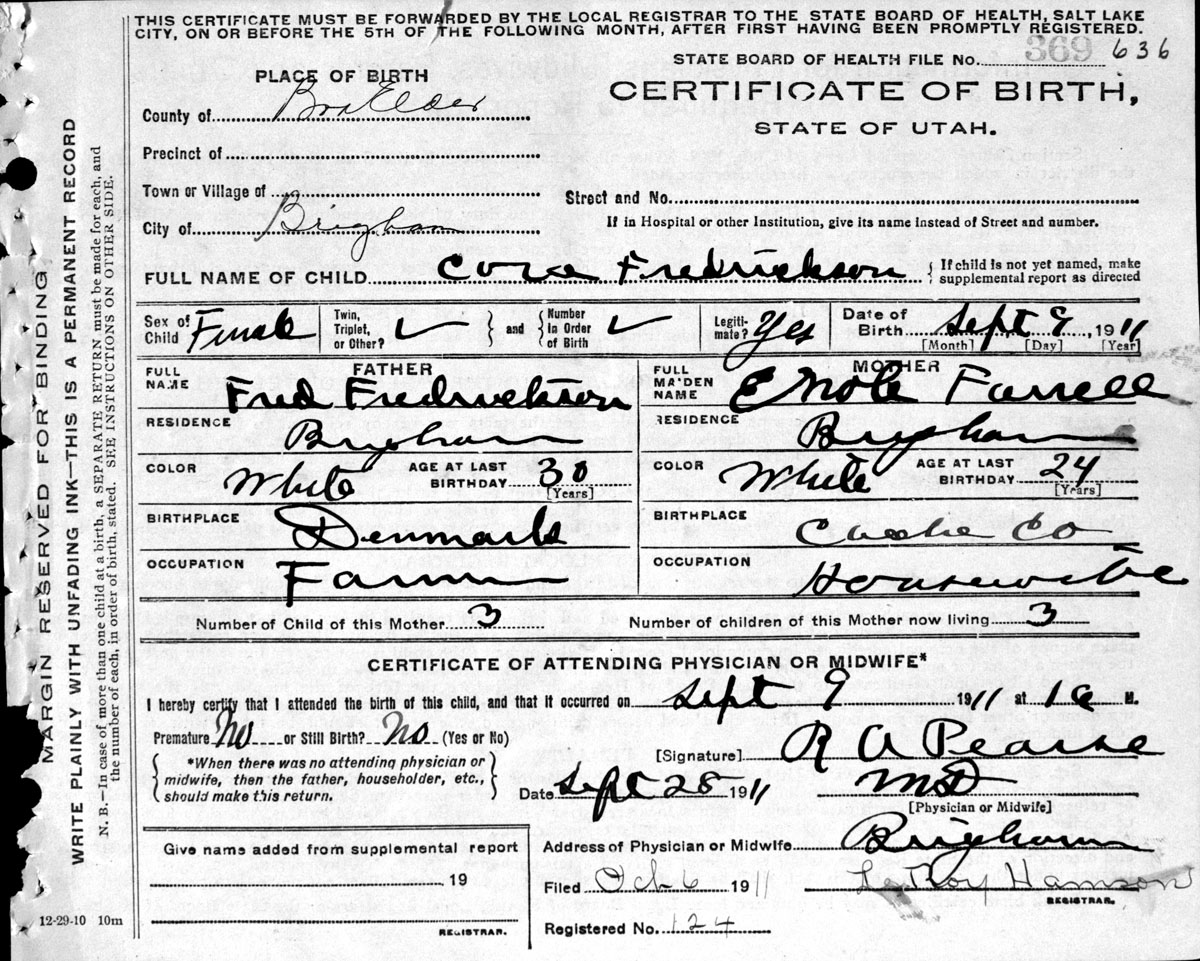 THIS CERTIFICATE MUST BE FORWARDED BY THE LOCAL REGISTRAR TO THE STATE BOARD OF HEALTH, SALT LAKE
CITY, ON OR BEFORE THE 5TH OF THE FOLLOWING MONTH, AFTER FIRST HAVING BEEN PROMPTLY REGISTERED.
STATE BOARD OF HEALTH FILE NO. 369 636
PLACE OF BIRTH
CERTIFICATE OF BIRTH,
STATE OF UTAH.
County of Box Elder
Precinct of
Town or Village of
Street and No.
City of Brigham
If in Hospital or other Institution, give its name instead of Street and number.
FULL NAME OF CHILD Fredrickson
{ If child is not yet named, make
supplemental report as directed
Sex of Child Female
Twin, Triplet, or Other? ✓ } and { Number In Order of Birth ✓
Legiti-mate? Yes
Date of Birth Sept 9, 1911
[Month] [Day] [Year]
FATHER
FULL NAME Fred Fredrickson
RESIDENCE Brigham
COLOR White AGE AT LAST BIRTHDAY 30
[Years]
BIRTHPLACE Denmark
OCCUPATION Farmer
MOTHER
FULL MAIDEN NAME Farrell
RESIDENCE Brigham
COLOR White AGE AT LAST BIRTHDAY 24
[Years]
BIRTHPLACE Cache Co
OCCUPATION Housewife
Number of Child of this Mother 3
Number of children of this Mother now living 3
CERTIFICATE OF ATTENDING PHYSICIAN OR MIDWIFE*
I hereby certify that I attended the birth of this child, and that it occurred on Sept 9 1911 at M.
Premature No or Still Birth? No (Yes or No)
{ *When there was no attending physician or
midwife, then the father, householder, etc.,
should make this return. }
[Signature] R A Pearse
Date Sept 28 1911 MD
[Physician or Midwife]
Address of Physician or Midwife Brigham
Give name added from supplemental report
19
REGISTRAR.
Filed Oct 6 1911 LeRoy Hamson
REGISTRAR.
Registered No. 124
12-29-10 10m
MARGIN RESERVED FOR BINDING
WRITE PLAINLY WITH UNFADING INK—THIS IS A PERMANENT RECORD
N. B.—In case of more than one child at a birth, a SEPARATE RETURN must be made for each, and
the number of each, in order of birth, stated. SEE INSTRUCTIONS ON OTHER SIDE.